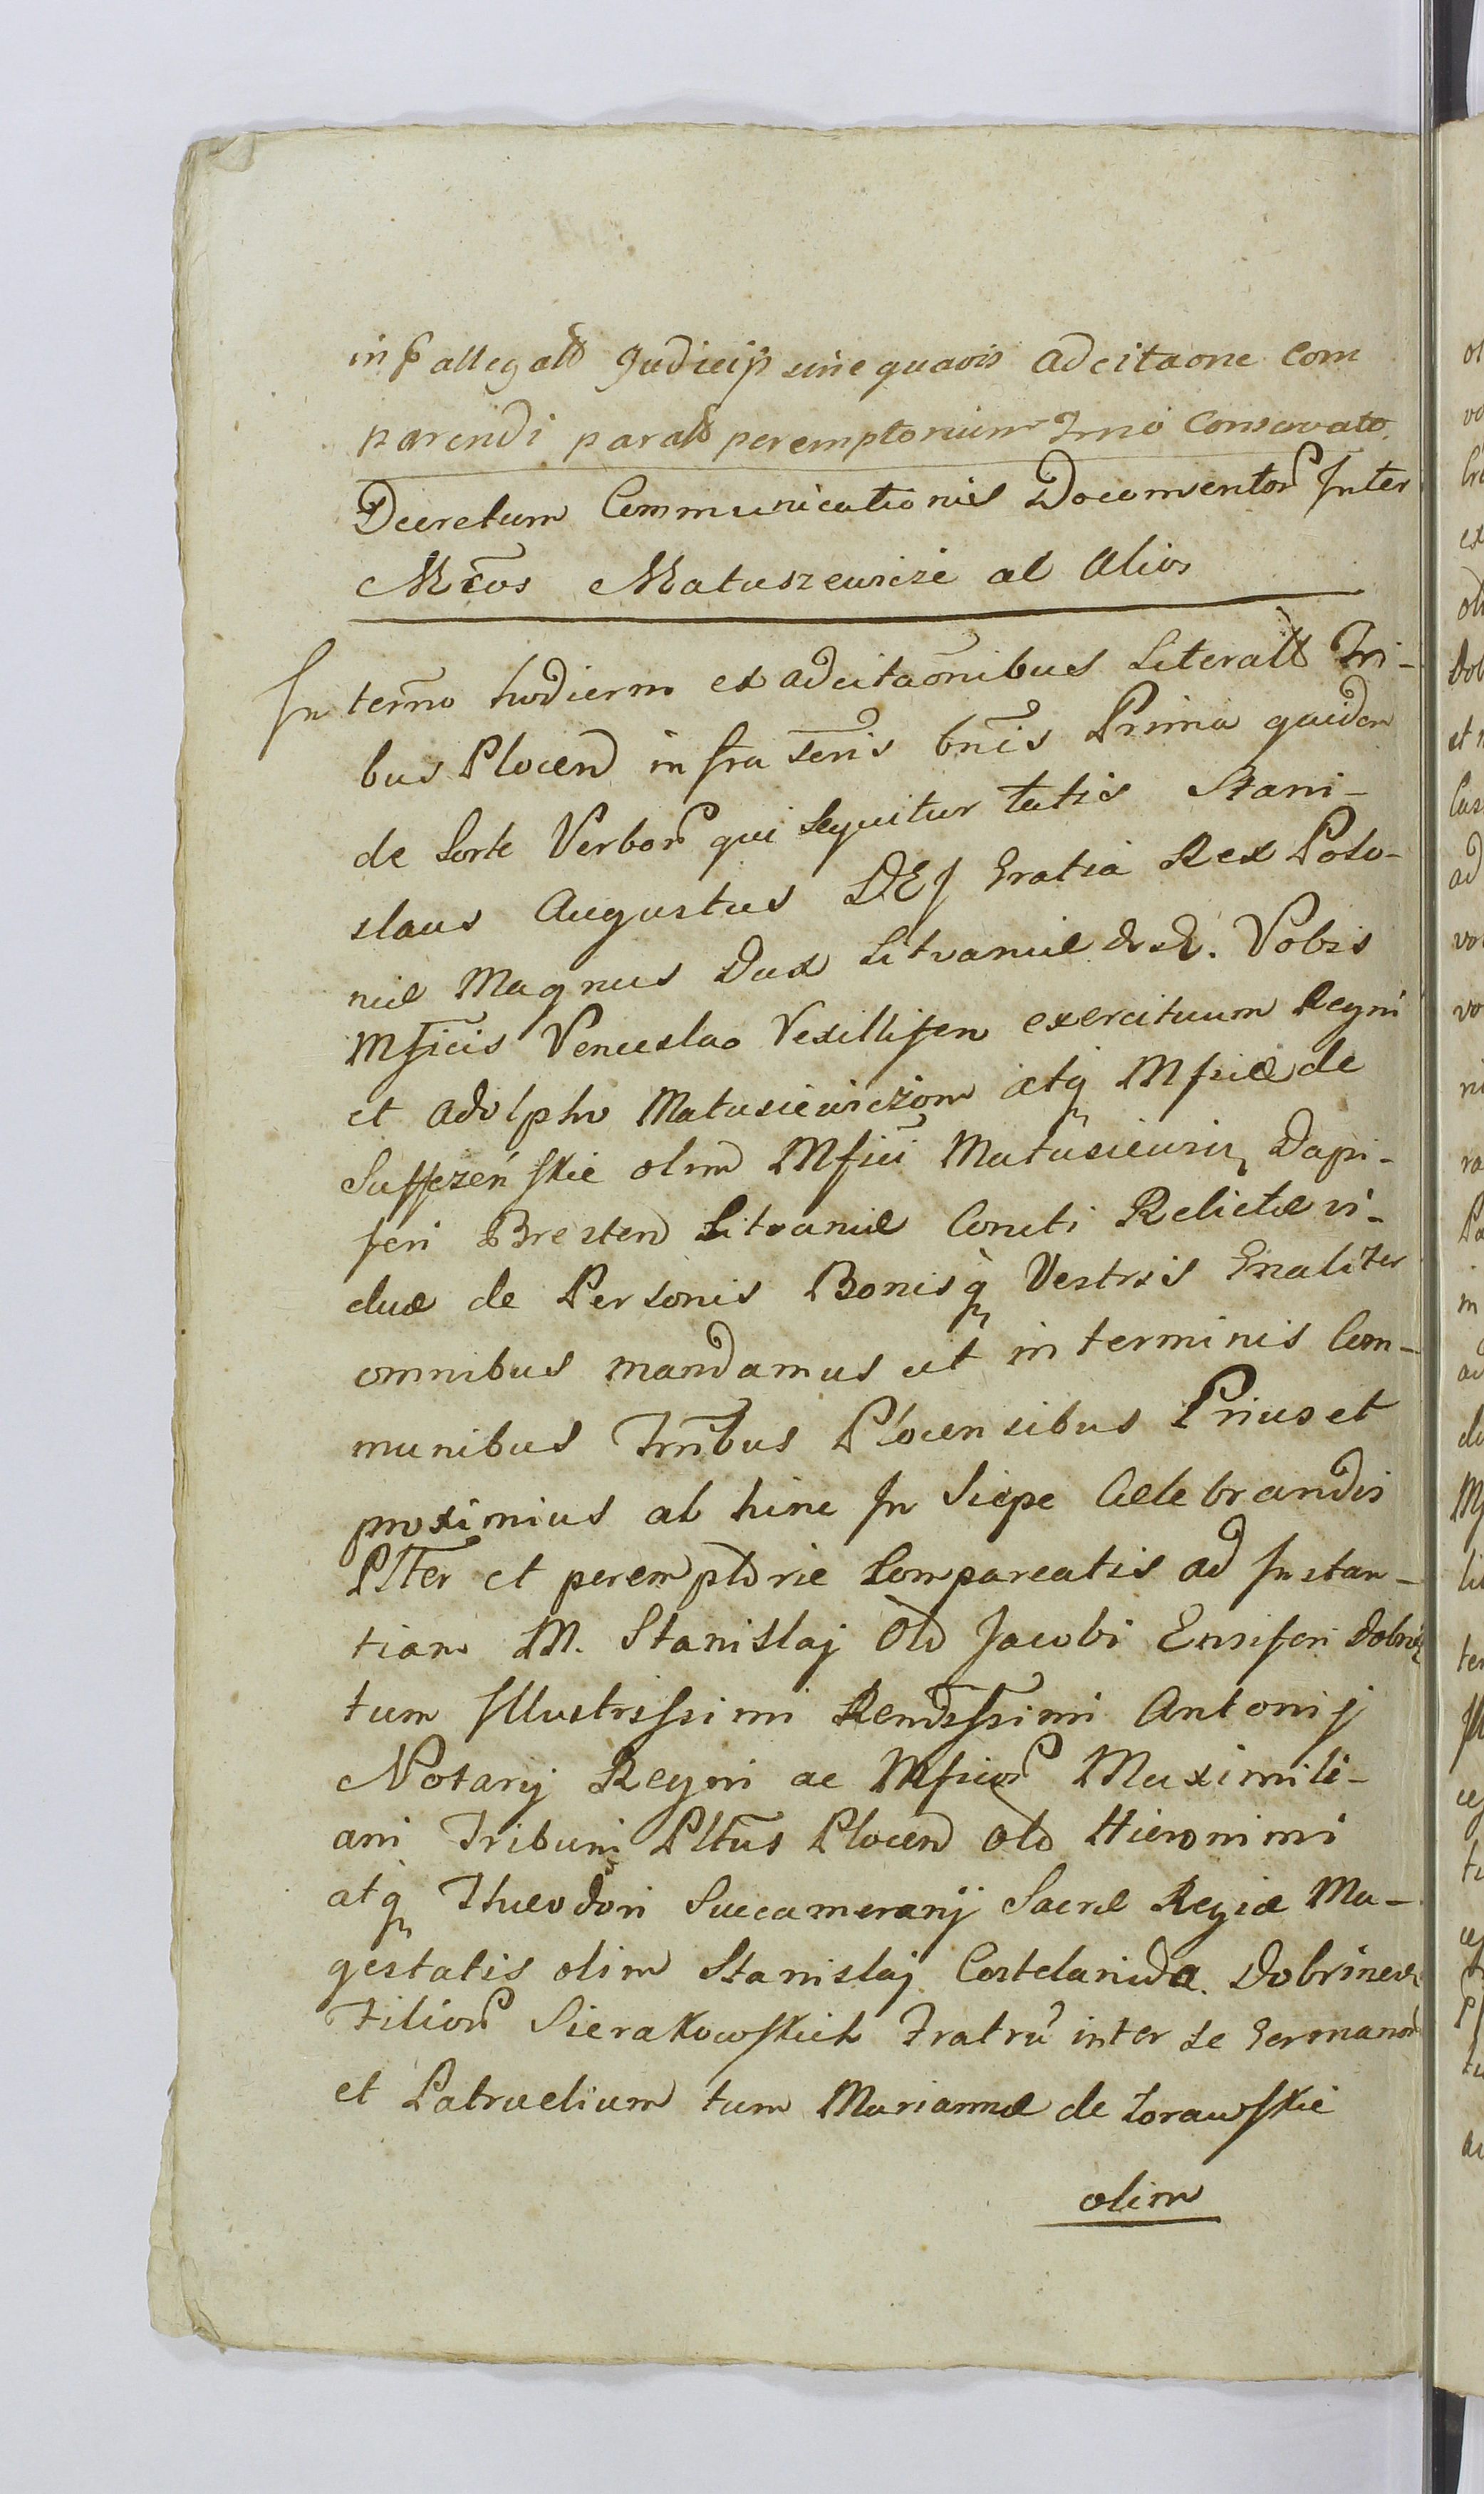 in Pallegatt Judicijs sine quavis adcitaone com
parendi paratt peremptorium Trnō Conservato
Decretum Communicationis Documentor Inter
Mcōs Matuszewicze al Alios
In termō hodierno ex adcitaōnibus Literatt Tri-
bus Plocen infra Seris bnēis Prima quidem
de Sorte Verbor qui Sequitur talis Stani-
slaus Augustus DEJ Gratia Rex Polo-
niæ Magnus Dux Litvaniæ &c &c. Vobis
Mficis Venceslao Vexillifero exercituum Regni
et Adolpho Matusiewiczom atq Mficæ de
Suffczeńskie olim Mfici Matusiewicz Dapi-
feri Bresten Litvaniæ Concti Relictæ vi-
duæ de Personis Bonisq Vestris Gnaliter
omnibus mandamus ut in terminis Com-
munibus Trribus Plocensibus Prius et
proximius ab hinc In Siepc Celebrandis
Pltter et peremptorie Compareatis ad Instan-
tiam M. Stanislaj Olo Jacobi Ensiferi Dobrin
tum Illustrissimi Rendissimi Antonij
Notarij Regni ac Mficor Maximili-
ani Tribuni Pltus Plocen Olo Hieronimi
atq Theodori Succamerarij Sacræ Regiæ Ma-
gestatis olim Stanislaj Castelanida Dobrinen
Filior Sierakowskich Fratrū inter se Germanor
et Patruelium tum Mariannæ de Zorawskie
olim